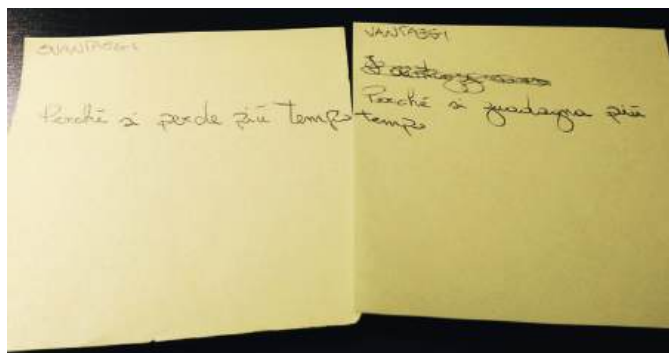 SVANTAGGI
Perché si perde più tempo
VANTAGGI
Perché si guadagna più
tempo